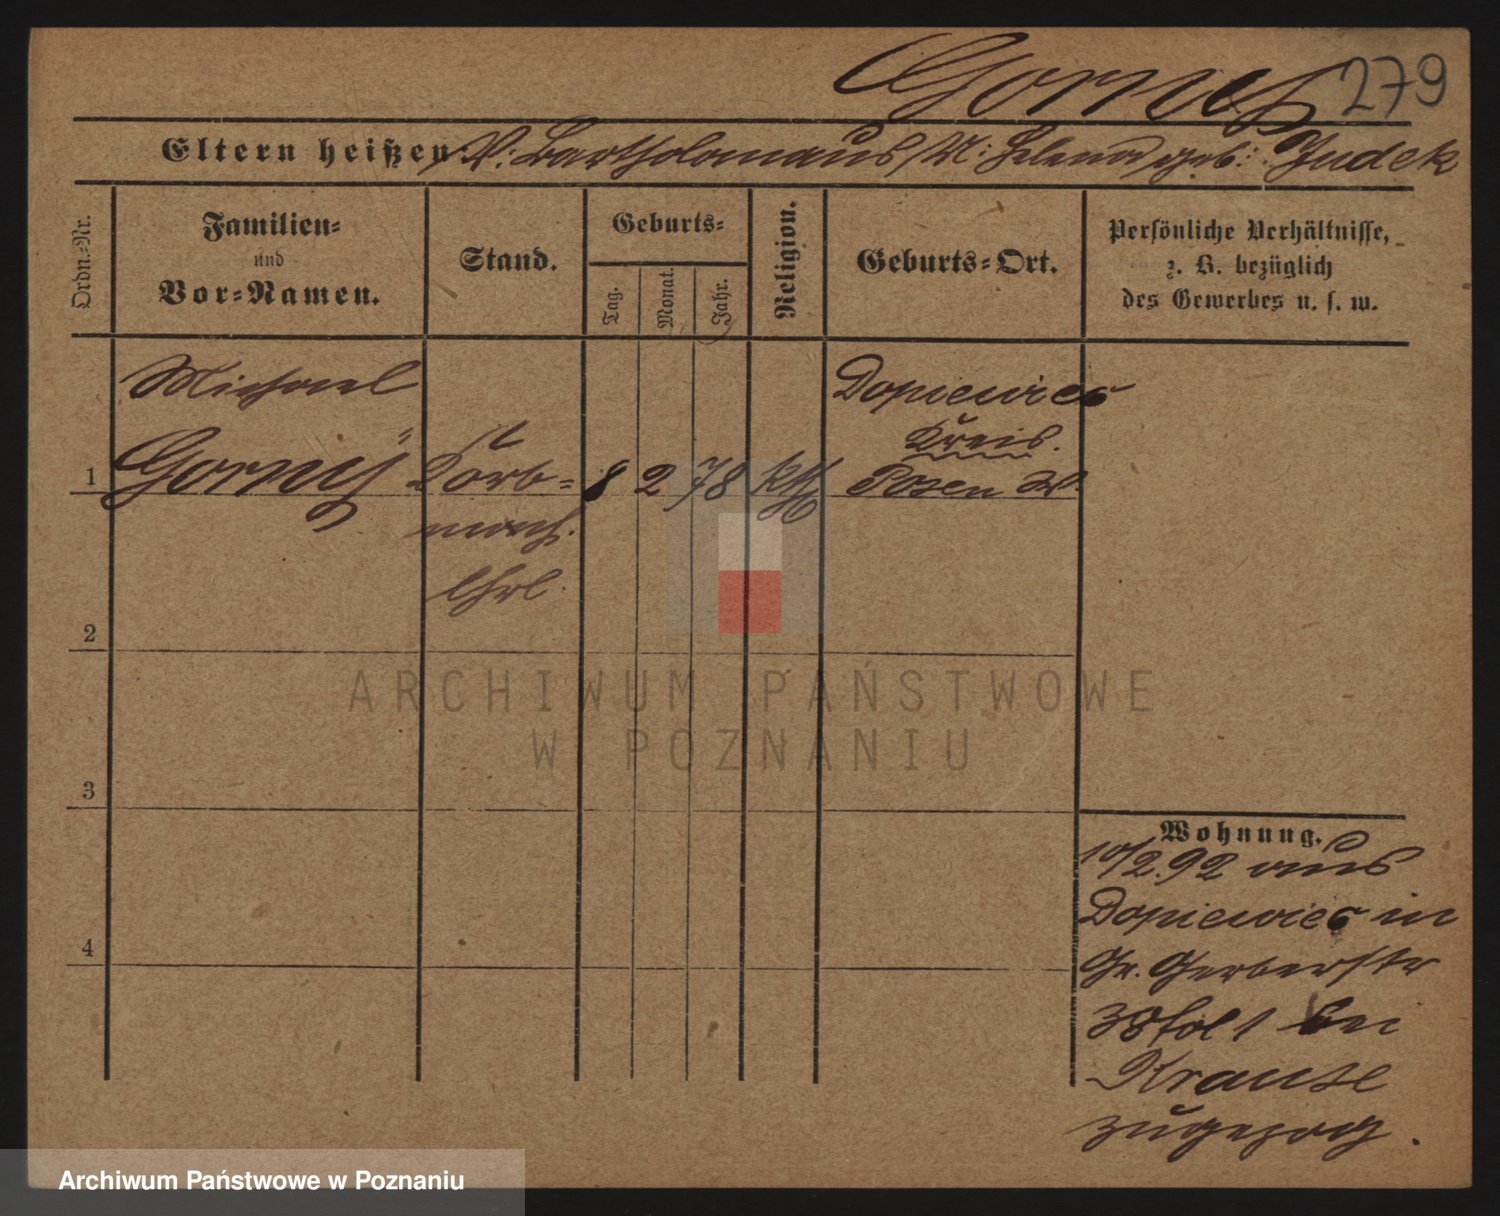 Gorny 279
Eltern heißen: V: Bartholomäus, M: Helena geb: Judek
Ordn.=Nr.
Familien=
und
Vor=Namen.
Stand.
Geburts=
Tag.
Monat.
Jahr.
Religion.
Geburts=Ort.
Persönliche Verhältnisse,
z. B. bezüglich
des Gewerbes u. s. w.
Michael
Gorny
1
Korb=
mach.
Lhrl.
8 2 78 kth
Dopiewiec
Kreis.
Posen W.
2
3
4
Wohnung.
10/2.92 aus
Dopiewiec in
Gr. Gerberstr
38 1 bei
Krause
zugezog.
ARCHIWUM PAŃSTWOWE
W POZNANIU
Archiwum Państwowe w Poznaniu